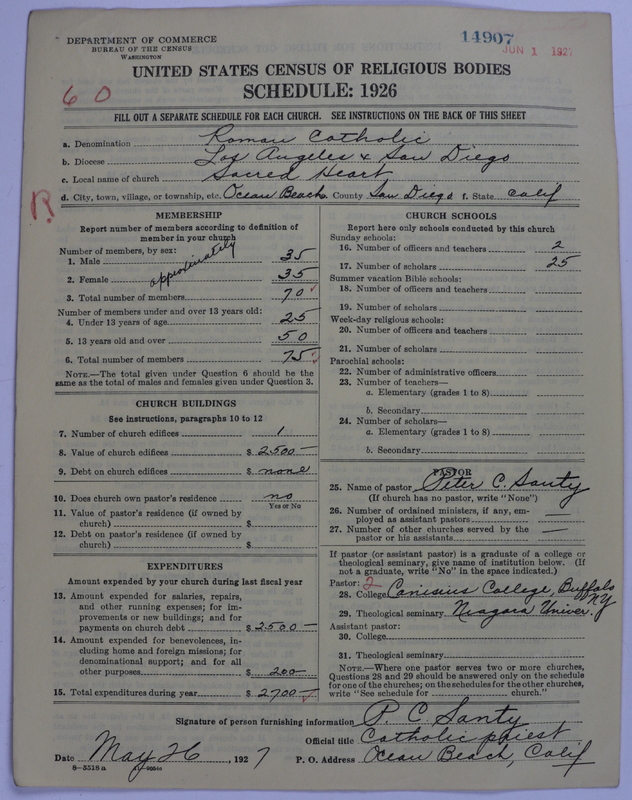 DEPARTMENT OF COMMERCE
BUREAU OF THE CENSUS
WASHINGTON
14907
JUN 1 1927
UNITED STATES CENSUS OF RELIGIOUS BODIES
SCHEDULE: 1926
6 0
FILL OUT A SEPARATE SCHEDULE FOR EACH CHURCH. SEE INSTRUCTIONS ON THE BACK OF THIS SHEET
a. Denomination Roman Catholic
b. Diocese Los Angeles & San Diego
c. Local name of church Sacred Heart
d. City, town, village, or township, etc. Ocean Beach County San Diego f. State Calif
R.
MEMBERSHIP
Report number of members according to definition of
member in your church
Number of members, by sex:
approximately
1. Male 35
2. Female 35
3. Total number of members 70
Number of members under and over 13 years old:
4. Under 13 years of age 25
5. 13 years old and over 50
6. Total number of members 75
NOTE.—The total given under Question 6 should be the
same as the total of males and females given under Question 3.
CHURCH BUILDINGS
See instructions, paragraphs 10 to 12
7. Number of church edifices 1
8. Value of church edifices $ 2500—
9. Debt on church edifices $ none
10. Does church own pastor's residence no
Yes or No
11. Value of pastor's residence (if owned by
church) $
12. Debt on pastor's residence (if owned by
church) $
EXPENDITURES
Amount expended by your church during last fiscal year
13. Amount expended for salaries, repairs,
and other running expenses; for im-
provements or new buildings; and for
payments on church debt $ 2500—
14. Amount expended for benevolences, in-
cluding home and foreign missions; for
denominational support; and for all
other purposes $ 200—
15. Total expenditures during year $ 2700—
CHURCH SCHOOLS
Report here only schools conducted by this church
Sunday schools:
16. Number of officers and teachers 2
17. Number of scholars 25
Summer vacation Bible schools:
18. Number of officers and teachers
19. Number of scholars
Week-day religious schools:
20. Number of officers and teachers
21. Number of scholars
Parochial schools:
22. Number of administrative officers
23. Number of teachers—
a. Elementary (grades 1 to 8)
b. Secondary
24. Number of scholars—
a. Elementary (grades 1 to 8)
b. Secondary
PASTOR
25. Name of pastor Peter C. Santy
(If church has no pastor, write "None")
26. Number of ordained ministers, if any, em-
ployed as assistant pastors —
27. Number of other churches served by the
pastor or his assistants —
If pastor (or assistant pastor) is a graduate of a college or
theological seminary, give name of institution below. (If
not a graduate, write "No" in the space indicated.)
Pastor: 2
28. College Canisius College, Buffalo
NY
29. Theological seminary Niagara Univer.
Assistant pastor:
30. College
31. Theological seminary
NOTE.—Where one pastor serves two or more churches,
Questions 28 and 29 should be answered only on the schedule
for one of the churches; on the schedules for the other churches,
write "See schedule for church."
Signature of person furnishing information P. C. Santy
Official title Catholic priest
Date May 26, 1927 P. O. Address Ocean Beach, Calif
8—5518 a